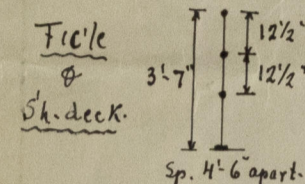 Fic'le
&
Sh. deck.
3'-7"
12 1/2"
12 1/2"
Sp. 4'-6" apart.